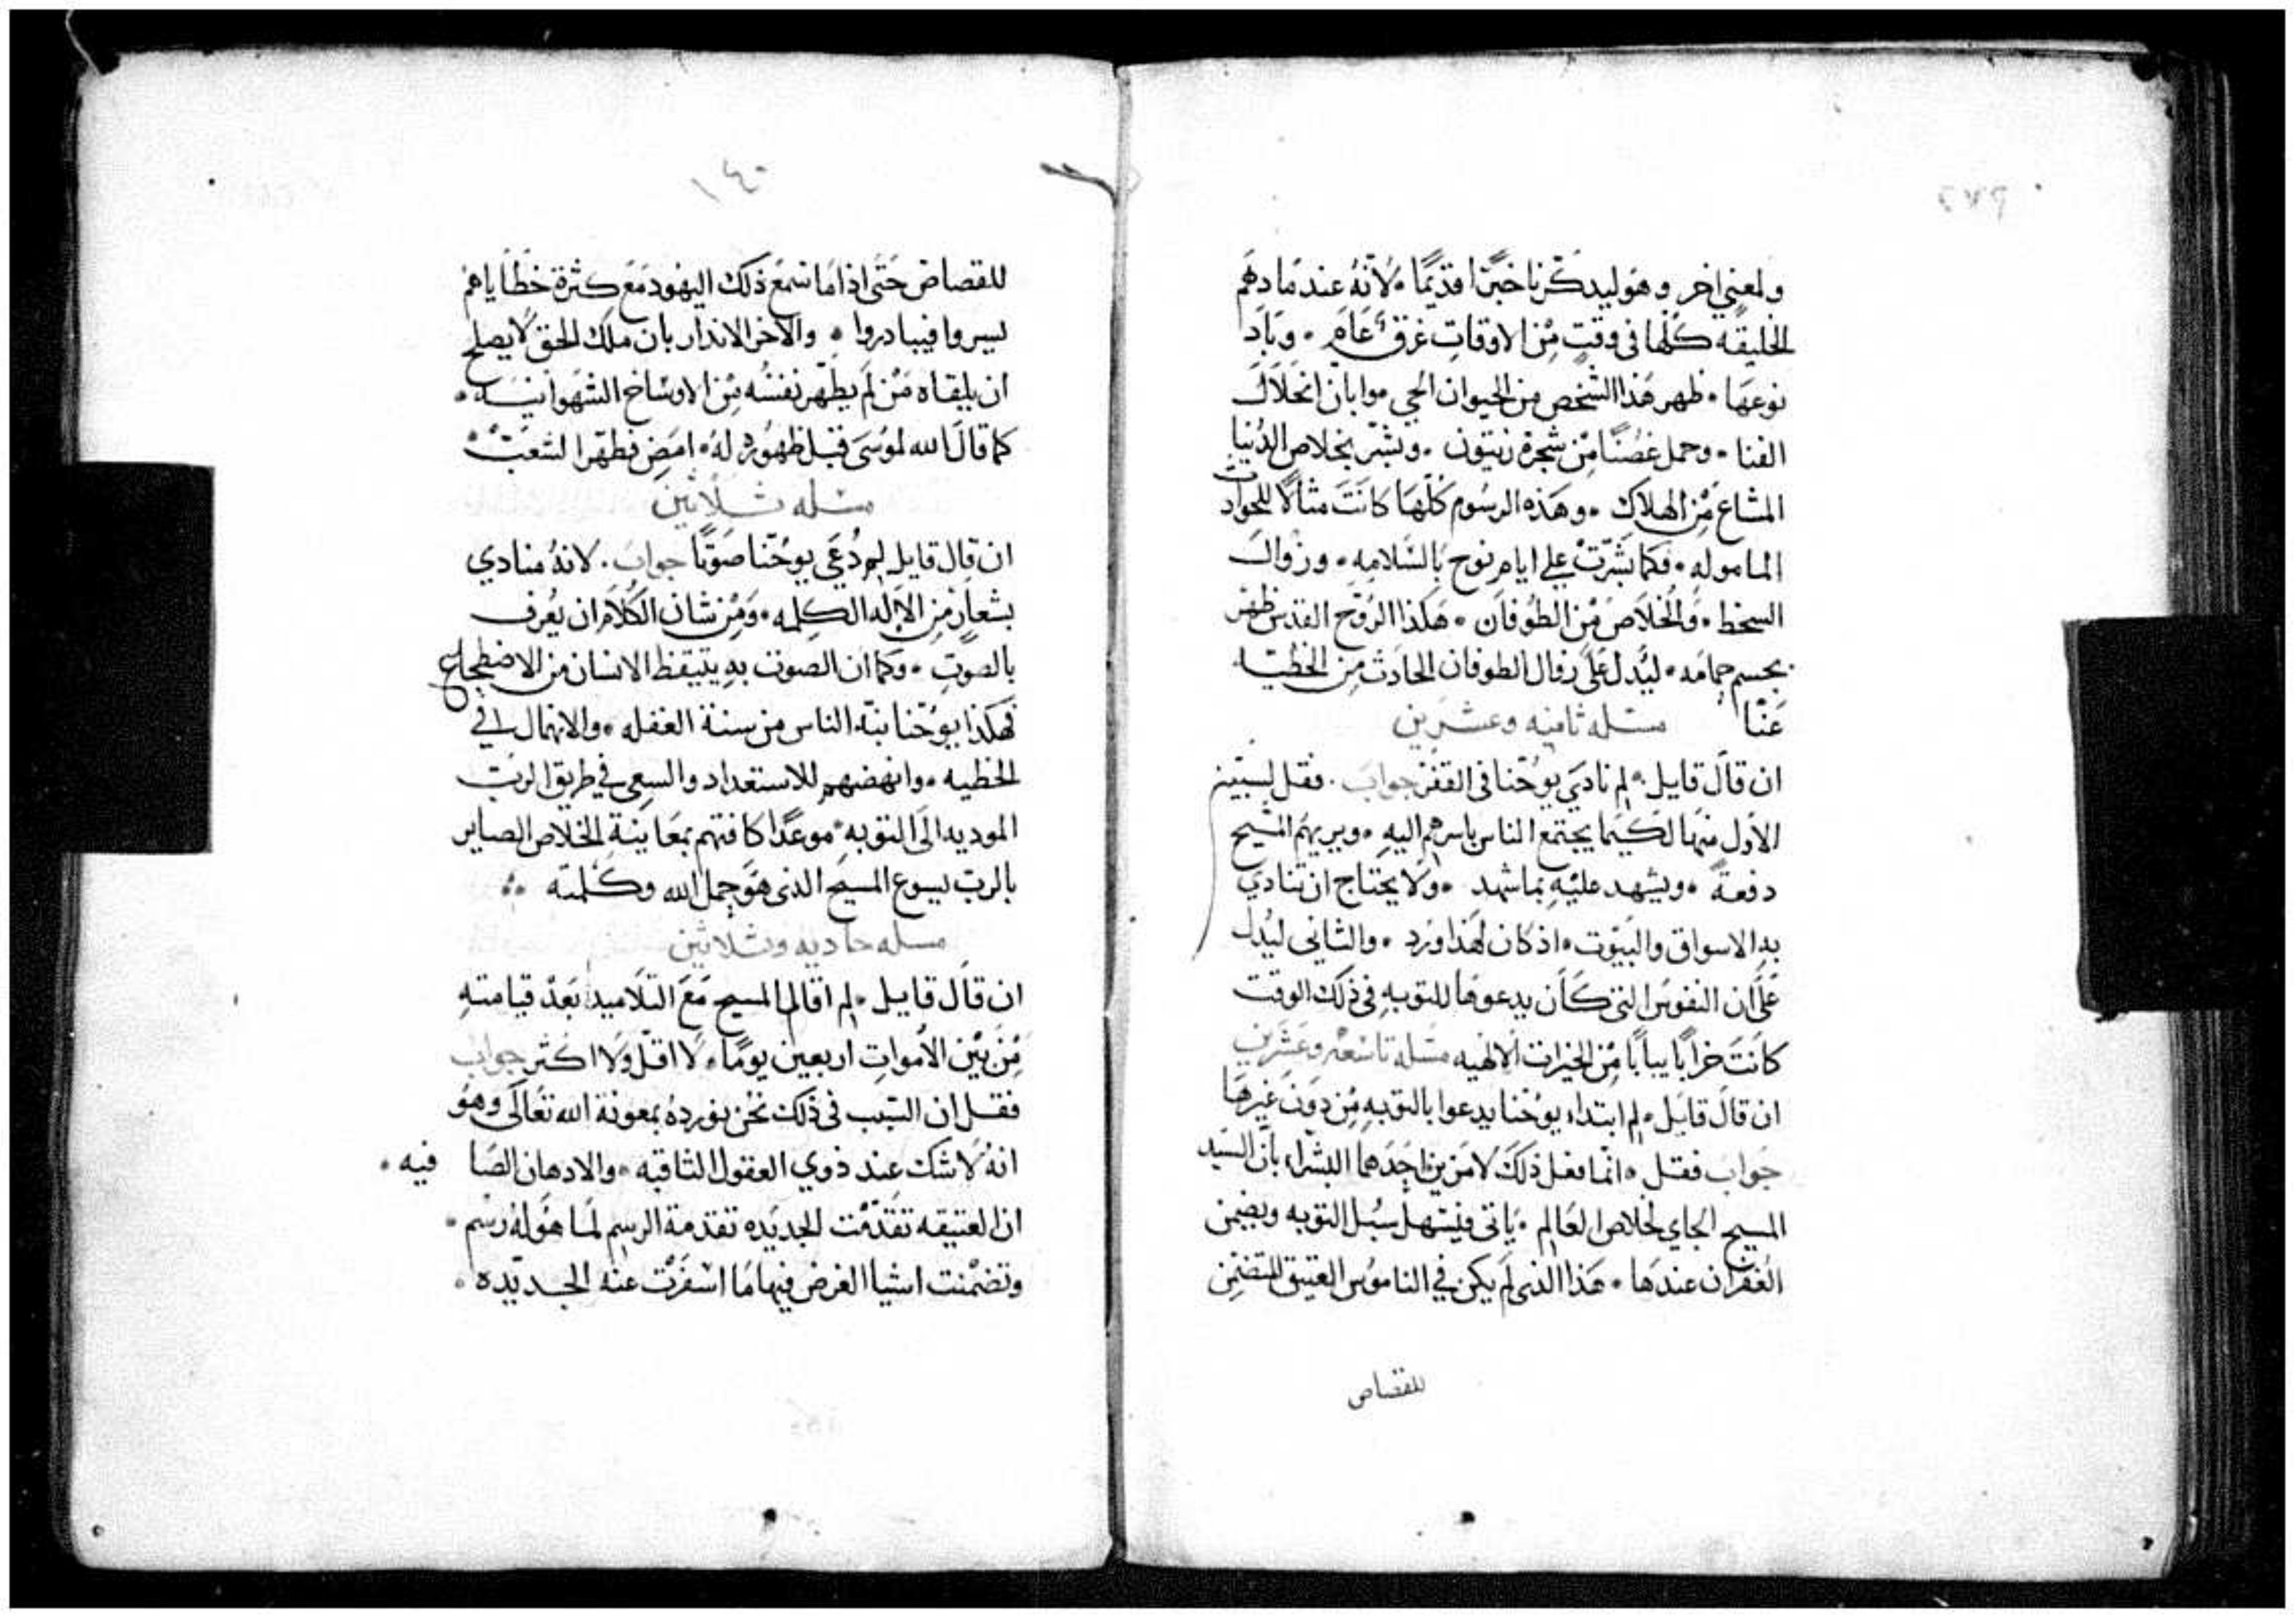 ٢٧٩
ولمعني اخر وهو ليدكّرنا خبرًا قديمًا۰ لانّهُ عندما دهم
الخليقه كلّها في وقتٍ مِن الاوقاتِ غرقٌ عَام۰ وباد
نوعها۰ ظهر هَذا الشّخص من الحيوان الحي موا بان انحلال
الفنا۰ وحمل غصنًا من شجرة زيتون۰ وبشّر بخلاص الدُنيا
المشاع مِن الهلاك۰ وهَذه الرسُوم كلّهَا كانَت مثالًا للحوادث
الماموله۰ فكما بشّرت علي ايام نوح بالسّلامه۰ وزوال
السخط۰ والخلاص من الطُوفان۰ هَكذا الرُوح القدس ظهر
بجسم حمامه۰ ليّدل عَلى زوال الطوفان الحادث مِن الخطيّه
عَنّا مسّله ثامنه وعشرين
ان قالَ قايل۰ لم نادَي يوحّنا في القفر جوابَ۰ فقل لسببين
الاول منهما لكيما يجتمع الناس باسرهم اليهِ۰ ويريهم المسّيح
دفعةً۰ ويشهد عليْهِ بماشهد۰ ولا يحتاج ان تنادي
بهِ الاسواق والبيُوت۰ اذ كان لهَذا ورد۰ والثاني ليُدل
عَلَى ان النفوس التي كان يدعوها للتوبهِ في ذلك الوقت
كانَت خرابًا يبابًا مِن الخيرات الالهيه مسله تاسعه وعشرين
ان قالَ قايل۰ لم ابتداء يوحّنا يدعوا بالتوبهِ مِن دون غيرها
جوَابَ فقل۰ انّما فعل ذلكَ لامرين احَدهما البشراء بانّ السّيد
المسيح الجاي لخلاص العَالم۰ ياتي فيسّهل سبُل التوبه ويضمن
الغفران عندها۰ هَذا الذي لم يكن في الناموُس العتيق المتضمِن
للقصاص
١٤٠
للقصاص حَتى اذا ما سمع ذلك اليهود مع كثرة خطاياهم
ييسروا فيبادروا۰ والاخر الاندار بان ملك الحق لا يصلح
ان يلقاه مَن لَم يطهّر نفسُه مِن الاوسَاخ الشهَوانيَه۰
كما قالَ الله لموسَى قبل ظهوُره لهُ۰ امضِ فطهّر الشعَبْ۰
مسله ثلاثين
ان قال قايل لِم دُعَي يوحّنا صَوتًا جوابَ۰ لانهُ منادي
بشعارٍ من الاله الكلمه۰ ومِن شان الكلام ان يُعرف
بالصوتِ۰ وكما ان الصوت بهِ يتيقظ الانسان من الاضطجاع
فهكذا يوحّنا نبّه الناس من سنة الغفله۰ والانهمال في
الخطيه۰ وانهضهم للاستعداد والسعي في طريق الربّ
الموديه الَى التوبهِ۰ موعدًا كافتهم بمعَاينة الخلاص الصاير
بالربّ يسوع المسيح الذي هوَ حمل الله وكلمته
مسله حاديه وثلاثين
ان قالَ قايل۰ لِم اقام المسيح مَعَ التلاميد بعَدْ قيامتهِ
مِنَ بيْن الاموات اربعين يومًا۰ لا اقل ولا اكثر جواب
فقل ان السّبب في ذلك نحُن نوردهُ بمعونة الله تعالَى وهوُ
انهُ لاشك عند ذوي العقول الثاقبه۰ والادهان الصَافيه۰
ان العتيقه تقدّمت الجديَده تقدمة الرسم لمَا هوَلهُ رسْم۰
وتضمّنت اشيا الغرض فيها مَا اسْفَرَت عنْه الجديّده۰